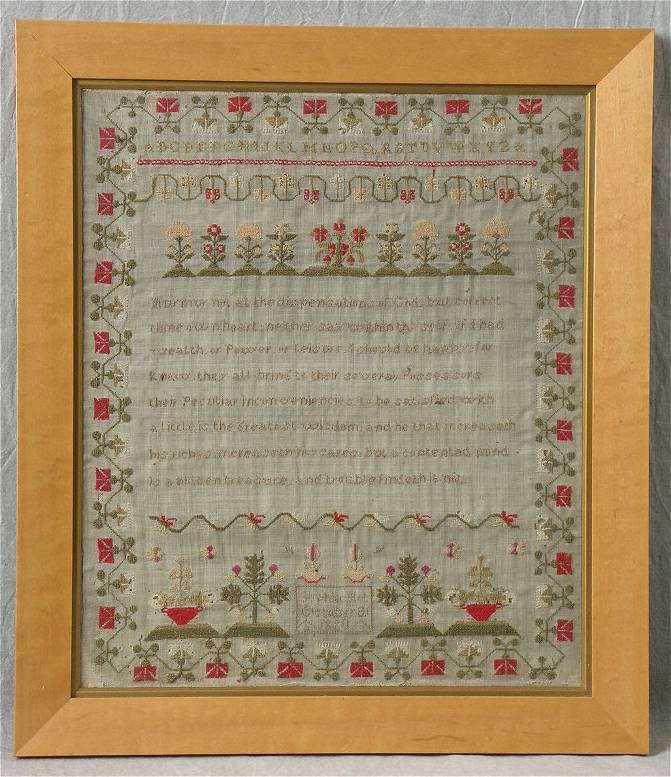 ABCDEFGHIJKLMNOPQRSTUVWXYZ&
Murmur not at the dispensations of God, but correct
thine own heart; neither say within thy self, if I had
wealth, or Power, or Leisure, I should be happy: for
Know, they all bring to their several Possessors
their Peculiar inconveniencies, to be satisfied with
a little is the greatest wisdom; and he that increaseth
his riches, increaseth his cares; but a contented mind
is a hidden treasure, and trouble findeth it not.
October